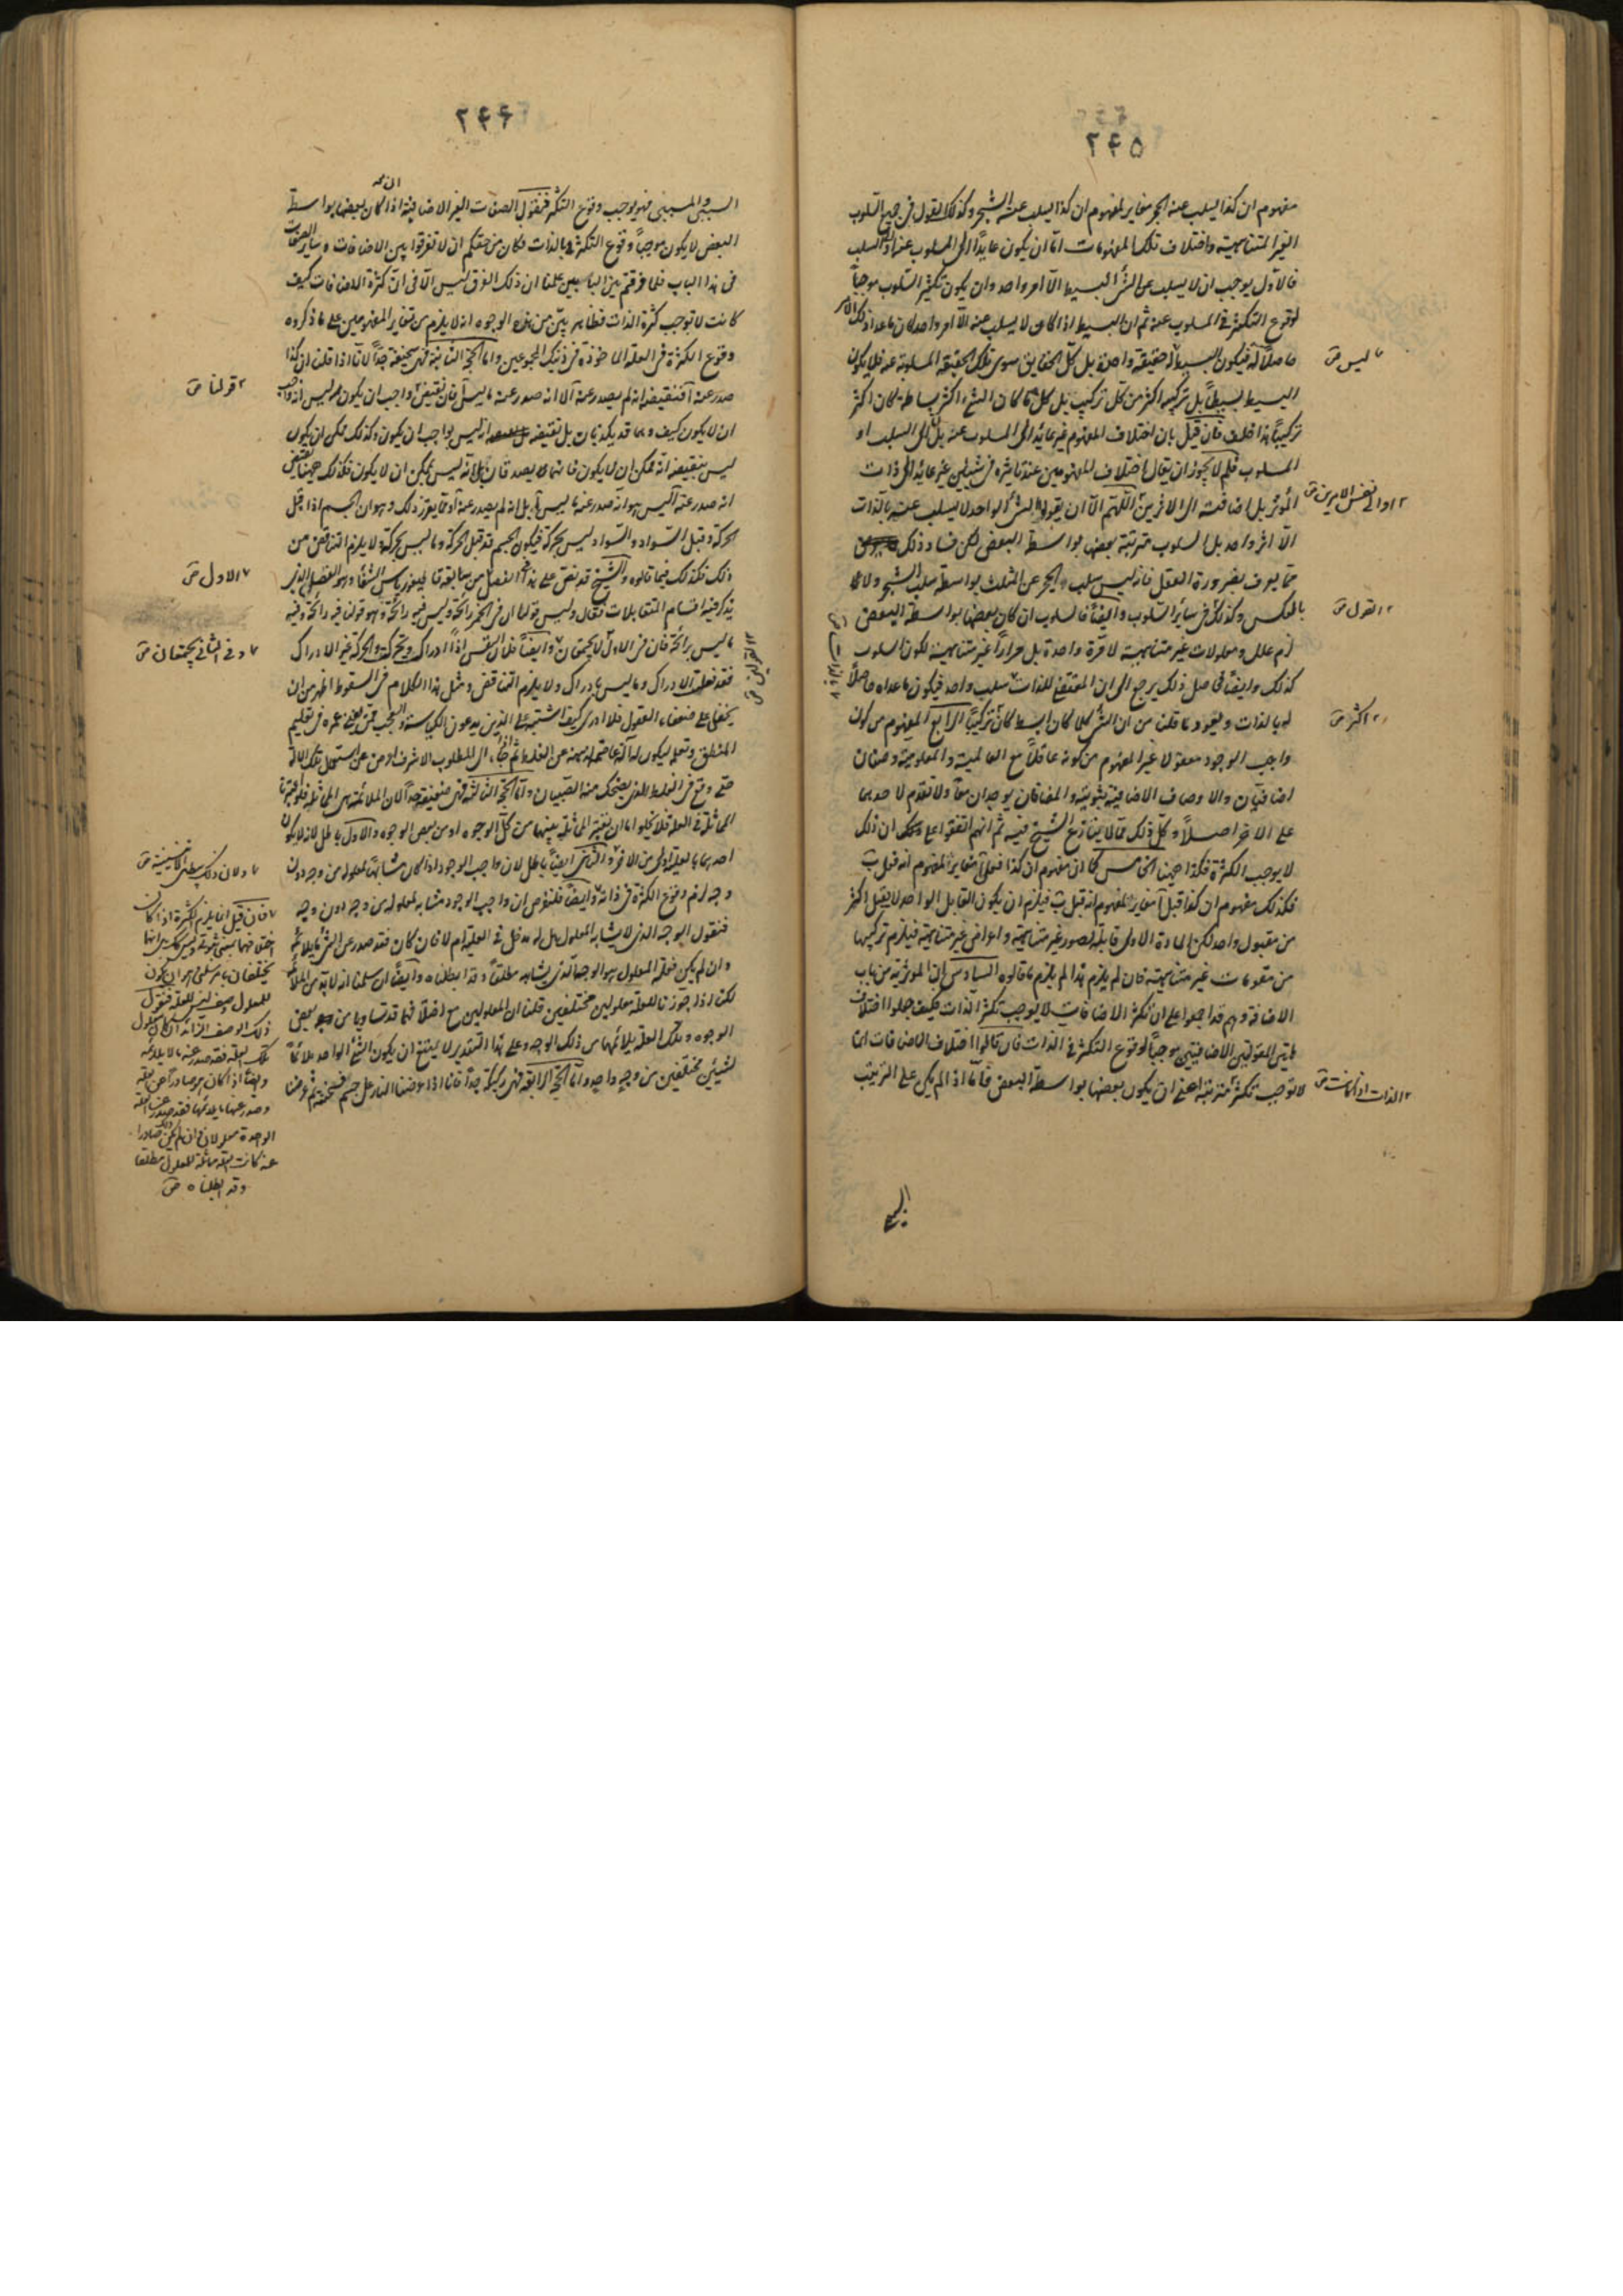 ٢٤٥
مفهوم ان كذا ليسلب عنه الحجر مغاير لمفهوم ان كذا يسلب عنه الشجر وكذلك القول فى جميع السلوب
الغير المتناهية واختلاف تلك المفهومات اما ان يكون عايدا الى المسلوب عنه او الى السلب
فالاول يوجب ان لا يسلب عن الشئ البسيط الا امر واحد وان يكون تكثر السلوب موجبا
لوقوع التكثر فى المسلوب عنه ثم ان البسيط اذا كان لا يسلب عنه الا امر واحد كان ما عدا ذلك الامر
حاصلا له فيكون للبسيط لا حقيقة واحدة بل كل الحقايق سوى تلك الحقيقة المسلوبة عنه فلا يكون
ليس
البسيط بسيطا بل تركيبه اكثر من كل تركيب بل كلما كان الشئ اكثر بساطة كان اكثر
تركيبا هذا خلف فان قيل بان اختلاف المفهوم غير عائد الى المسلوب عنه بل الى السلب او
المسلوب فلم لا يجوز ان يقال اختلاف المفهومين عند تاثيره فى شيئين غير عائد الى ذات
المؤثر بل اضافته الى الاخرين اللهم الا ان يقولوا الشئ الواحد لا يسلب عنه بالذات
الا امر واحد بل السلوب مترتبة بعضها بواسطة البعض لكن فساد ذلك
مما يعرف بضرورة العقل فانه ليس سلب الحجر عن المثلث بواسطة سلب الشجر ولا
بالعكس وكذلك فى سائر السلوب وايضا فالسلوب ان كان بعضها بواسطة البعض
القول
لزم علل ومعلولات غير متناهية لا مرة واحدة بل مرارا غير متناهية لكون السلوب
كذلك وايضا فحاصل ذلك يرجع الى ان المقتضى للذات سلب واحد فيكون ما عداه حاصلا
له بالذات ويعود ما قلنا من ان الشئ كلما كان ابسط كان تركيبا الرابع المفهوم من كون
اكثر
واجب الوجود معقولا غير المفهوم من كونه عاقلا مع العالمية والمعلومية وصفان
اضافيان والاوصاف الاضافية ثبوتية والمضافان يوجدان معا ولا تقدم لاحدهما
على الاخر اصلا وكل ذلك مما لا ينازع الشيخ فيه ثم انهم اتفقوا على ان ذلك
لا يوجب الكثرة فكذا ههنا الخامس كما ان مفهوم ان كذا فعل آ مغاير لمفهوم انه فعل ب
فكذلك مفهوم ان كذا قبل آ مغاير لمفهوم انه قبل ب فيلزم ان يكون القابل الواحد لا يقبل اكثر
من مقبول واحد لكن المادة الاولى قابلة لصور غير متناهية واعراض غير متناهية فيلزم تركيبها
من مقومات غير متناهية فان لم يلزم هذا لم يلزم ما قالوه السادس ان المؤثرية من باب
الاضافة وهم قد اجمعوا على ان تكثر الاضافات لا يوجب تكثر الذات فكيف جعلوا اختلاف
هاتين المقولتين الاضافيتين موجبا لوقوع التكثر فى الذات فان قالوا اختلاف الاضافات انما
لا توجب تكثر مترتبة اعنى ان يكون بعضها بواسطة البعض فاما اذا لم يكن على الترتيب
الذات اذا كانت
٢٤٦
السببى والمسببى فهو يوجب وقوع التكثر فنقول الصفات الغير الاضافية اذا كان بعضها بواسطة
البعض لا يكون موجبا وقوع التكثر فى الذات فكان من حقكم ان لا تفرقوا بين الاضافات وسائر الصفات
فى هذا الباب فلما فرقتم بين البابين علمنا ان ذلك الفرق ليس الا فى ان كثرة الاضافات كيف
كانت لا توجب كثرة الذات فظاهر بين من هذه الوجوه انه لا يلزم من تغاير المفهومين على ما ذكروه
وقوع الكثرة فى العلة الماخوذة فى ذينك المجموعين واما الحجة الثانية فهى سخيفة جدا لانا اذا قلنا ان كذا
صدر عنه آ فنقيضه انه لم يصدر عنه آ لا انه صدر عنه ما ليس آ فان نقيض واجب ان يكون هو ليس انه واجب
قولنا
ان لا يكون كيف وهما قد يكذبان بل نقيضه انه ليس بواجب ان يكون وكذلك ممكن ان يكون
ليس نقيضه انه ممكن ان لا يكون فانهما يصدقان بل انه ليس بممكن ان لا يكون فكذلك ههنا نقيض
انه صدر عنه آ ليس هو انه صدر عنه ما ليس آ بل انه لم يصدر عنه آ ومما يقرر ذلك وهو ان الجسم اذا قبل
الحركة وقبل السواد والسواد ليس بحركة فيكون الجسم قد قبل الحركة وما ليس بحركة ولا يلزم التناقض من
ذلك فكذلك فيما قالوه والشيخ قد نص على هذا
الاول
يذكر فيه اقسام المتقابلات فقال وليس قولنا ان فى الخمر رائحة وليس فيه رائحة هو قولنا فيه رائحة وفيه
ما ليس برائحة فان فى الاول لا يجتمعان وايضا فلان النفس اذا
وفى الثانى يجتمعان
فقد فعلت الادراك وما ليس بادراك ولا يلزم التناقض ومثل هذا الكلام فى السقوط اظهر من ان
يخفى على ضعفاء العقول فلا ادرى كيف اشتبه على الذين يدعون الكياسة والعجب ممن يفنى عمره فى تعليم
المنطق وتعلمه ليكون له آلة عاصمة لذهنه عن الغلط ثم اذا جاء الى المطلوب الاشرف اعرض عن استعمال تلك الآلة
حتى وقع فى الغلط الذى يضحك منه الصبيان واما الحجة الثالثة فهى ضعيفة جدا لان الملائمة هى المماثلة
المماثلة فى العلة فلا يخلو اما ان نعتبر المماثلة بينهما من كل الوجوه او من بعض الوجوه والاول باطل
احدهما بالعلية اولى من الاخر والثانى ايضا باطل لان واجب الوجود اذا كان مشابها لمعلوله من وجه دون
ولان ذلك يبطل الاثنينية
وجه لزم وقوع الكثرة فى ذاته وايضا فلنفرض ان واجب الوجود مشابه لمعلوله من وجه دون وجه
فنقول الوجه الذى لا يشابه المعلول هل له مدخل فى العلية ام لا فان كان فقد صدر عن الشئ ما لا يلائمه
وان لم يكن فعلة المعلول هو الوجه الذى يشابهه مطلقا وقد ابطلناه وايضا ان سلمنا انه لا بد من الملائمة
لكن اذا جوزنا للعلة معلولين مختلفين قلنا ان المعلولين مع اختلافهما قد تساويا من بعض
الوجوه وتلك العلة يلائمهما من ذلك الوجه وعلى هذا التقدير لا يمتنع ان يكون الشئ الواحد ملائما
لشيئين مختلفين من وجه واحد واما الحجة الرابعة فهى ركيكة جدا فانا اذا عرضنا النار على جسم فسخنته ثم عرضنا
فان قيل انما يلزم الكثرة اذا كان
للمعلول وصف ليس للعلة فنقول
ذلك الوصف الزائد ان كان معلول
تلك العلة فقد صدر عنه ما لا يلائمه
الوحدة معلولان وان لم يكن صادرا
عنه كانت العلة مماثلة للمعلول مطلقا
وقد ابطلناه